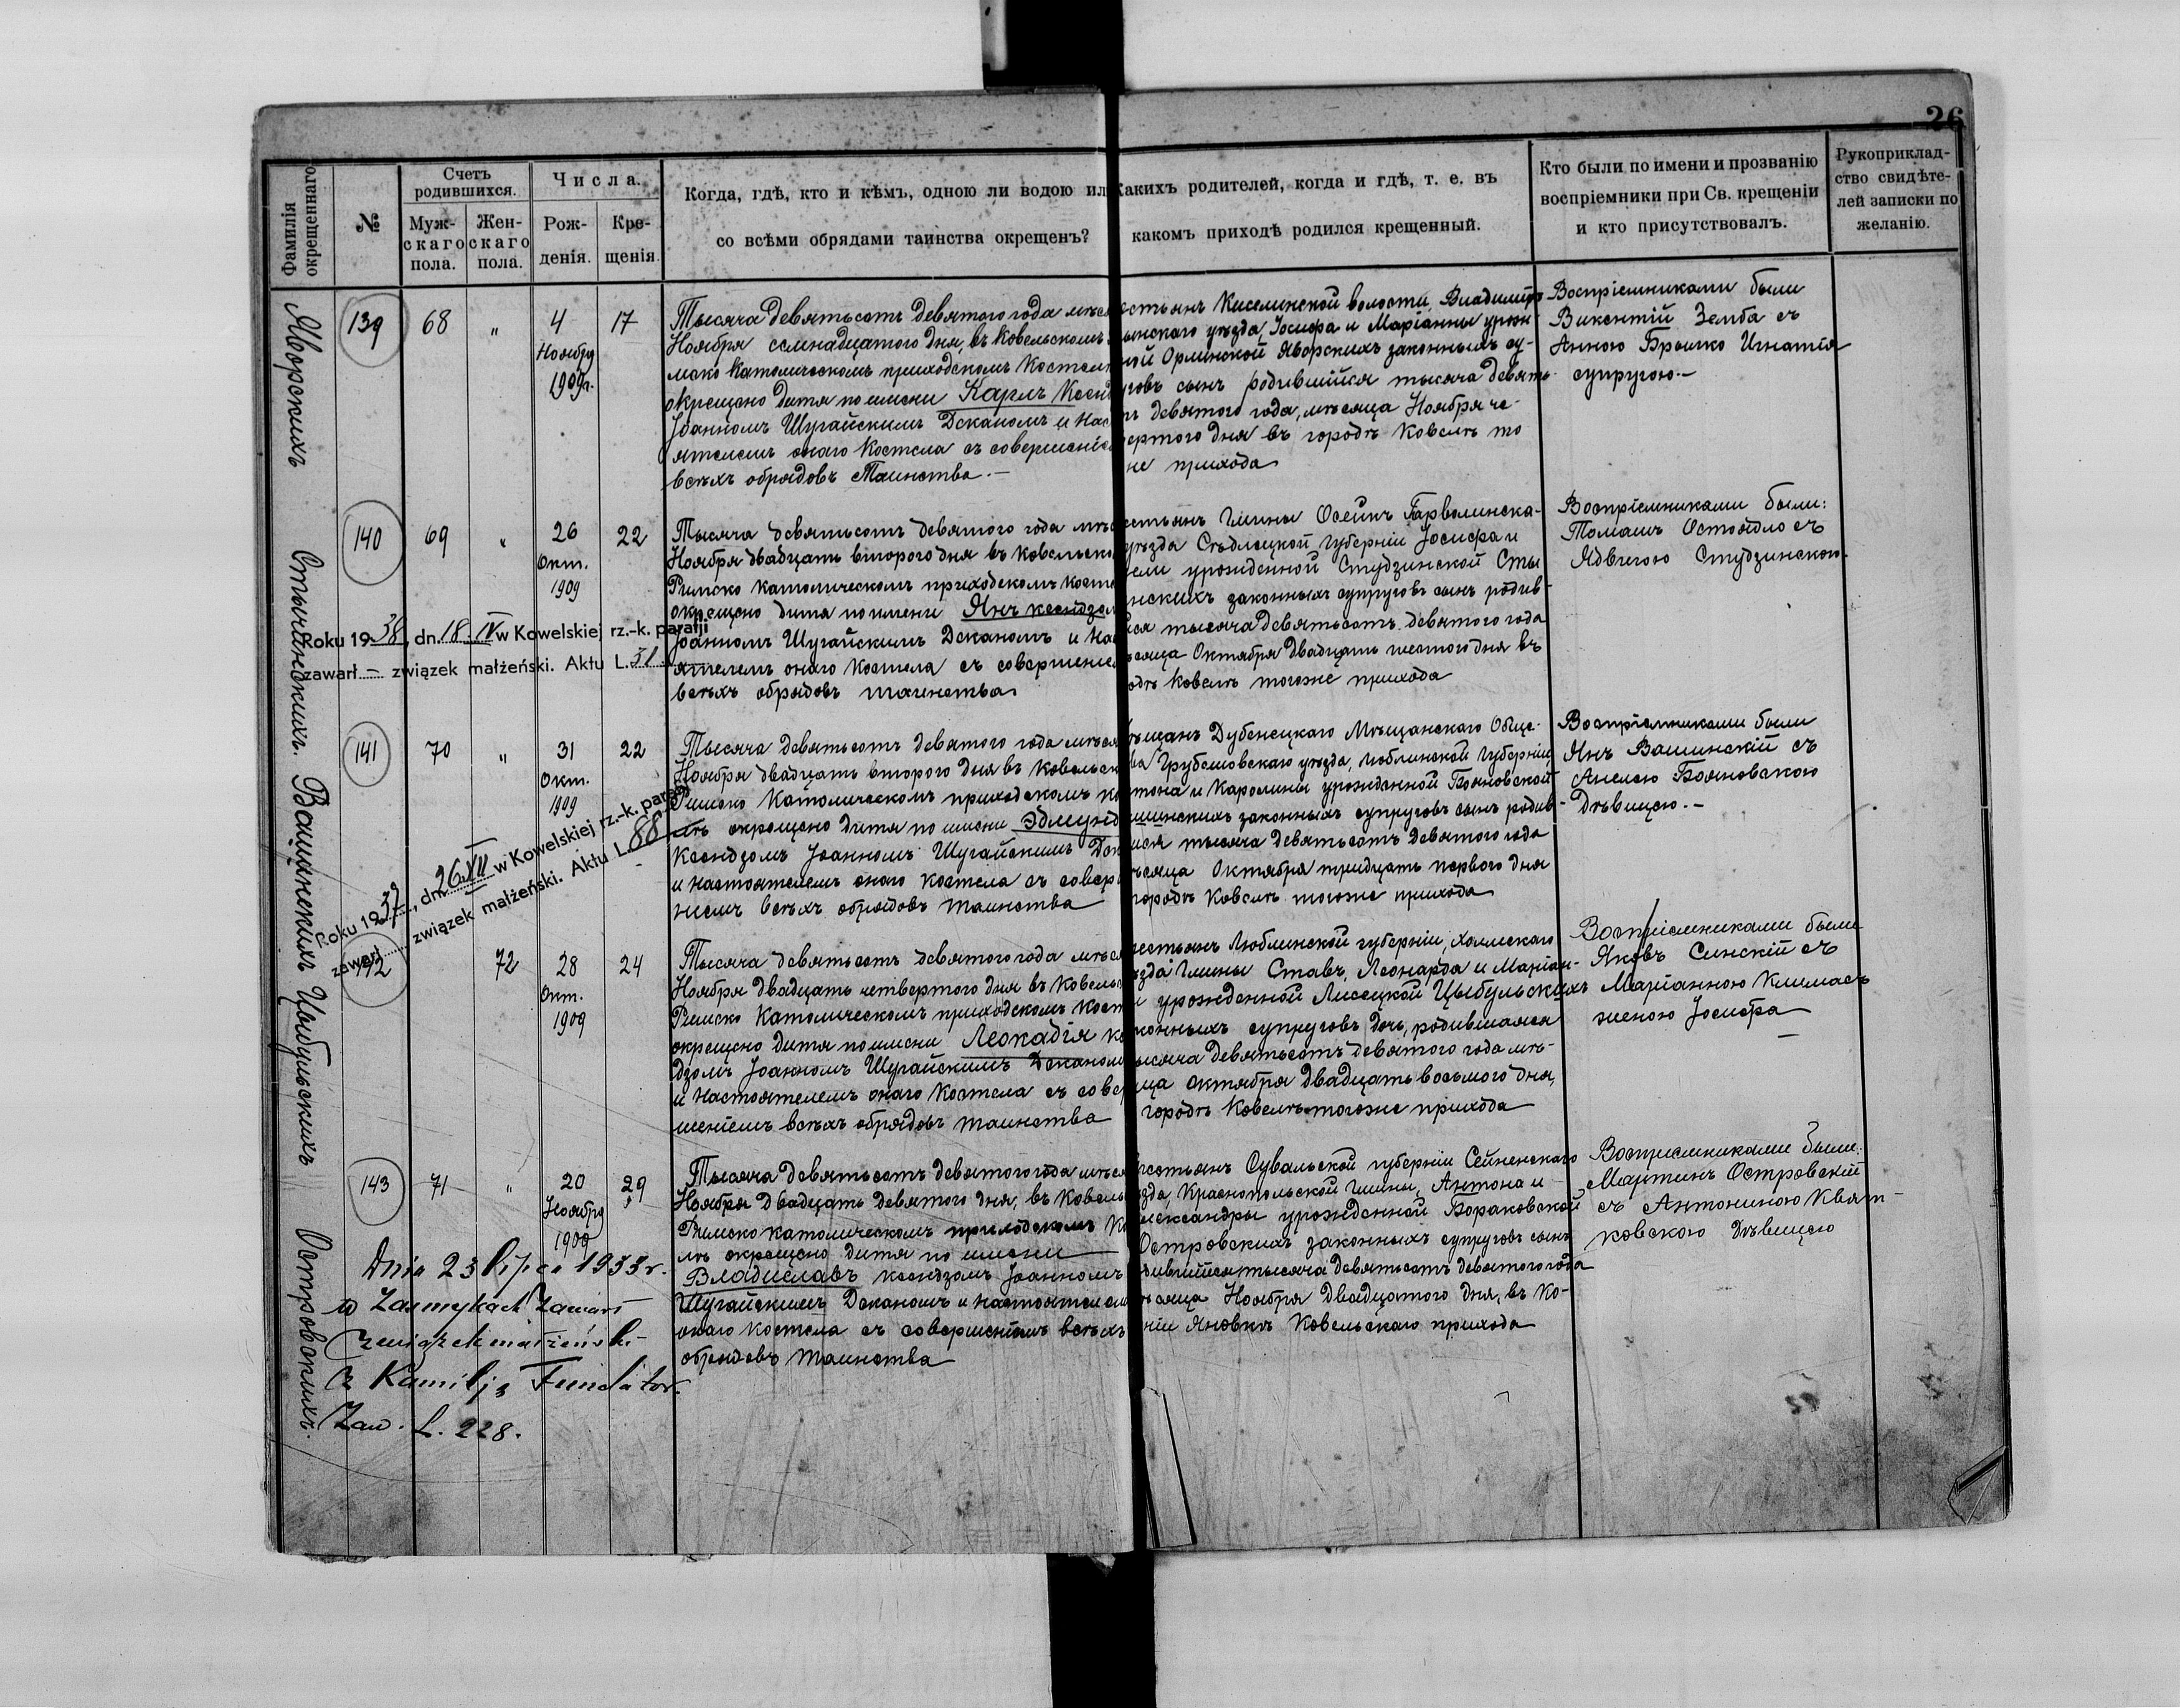 26
Фамилія окрещеннаго
№
Счетъ родившихся.
Муж-
скаго
пола.
Жен-
скаго
пола.
Числа.
Рож-
денія.
Кре-
щенія.
Когда, гдѣ, кто и кѣмъ, одною ли водою ил
со всѣми обрядами таинства окрещенъ?
Какихъ родителей, когда и гдѣ, т. е. въ
какомъ приходѣ родился крещенный.
Кто были по имени и прозванію
воспріемники при Св. крещеніи
и кто присутствовалъ.
Рукоприклад-
ство свидѣте-
лей записки по
желанію.
Яворскихъ
139
68
"
4
Ноября
1909г.
17
Тысяча девятьсотъ девятого года мѣся
Ноября семнадцатого дня, въ Ковельскомъ
мско Католическомъ приходскомъ Костел
окрещено дитя по имени Карлъ Ксенд
Іоанномъ Шугайскимъ Деканомъ и Нас
ятелемъ онаго Костела съ совершеніе
всѣхъ обрядовъ Таинства.—
стьянъ Киселинской волости, Владимір
ынскаго уѣзда, Іосифа и Маріанны урож
ной Орлинской Яворскихъ законныхъ су-
уговъ сынъ родившійся тысяча девять-
тъ девятого года, мѣсяца Ноября че-
вертого дня въ городѣ Ковелѣ то
же прихода
Воспріемниками были
Викентій Земба съ
Анною Брышко Игнатія
супругою.—
140
69
"
26
Окт.
1909
22
Тысяча девятьсотъ девятого года мѣс
Ноября двадцать второго дня въ Ковельско
Римско католическомъ приходскомъ косте
окрещено дитя по имени Янъ ксендзо
Іоанномъ Шугайскимъ Деканомъ и На
ятелемъ онаго Костела съ совершение
всѣхъ обрядовъ таинства
стьянъ Гмины Осецкъ Гарволинска-
уѣзда Сѣдлецкой Губерніи Іосифа и
ели урожденной Студзинской Сты
нскихъ законныхъ супруговъ сынъ родив-
йся тысяча девятьсотъ девятого года
ѣсяца Октября двадцать шестого дня въ
одѣ Ковелѣ тогоже прихода
Воспріемниками были:
Томашъ Остойдло съ
Ядвигою Студзинскою.
Roku 1938, dn. 18.IV w Kowelskiej rz.-k. parafji
zawarł — związek małżeński. Aktu L. 31
Ващинскихъ
141
70
"
31
Окт.
1909
22
Тысяча девятьсотъ девятого года мѣся
Ноября двадцать второго дня въ Ковельск
Римско Католическомъ приходскомъ ко
лѣ окрещено дитя по имени Эдмунд
Ксендзомъ Іоанномъ Шугайскимъ Дек
и настоятелемъ онаго костела съ совер
ніемъ всѣхъ обрядовъ таинства
ѣщанъ Дубенецкаго Мѣщанскаго Обще-
ва Грубешовскаго уѣзда, Люблинской Губерніи
тона и Каролины урожденной Бояновской
щинскихъ законныхъ супруговъ сынъ родив-
ійся тысяча девятьсотъ девятого года
ѣсяца Октября тридцать первого дня
городѣ Ковелѣ тогоже прихода
Воспріемниками были
Янъ Ващинскій съ
Анелею Бояновскою
Дѣвицею.—
Roku 1937, dn. 26.XII w Kowelskiej rz.-k. parafji
zawarł związek małżeński. Aktu L. 88
Цыбульскихъ
142
72
28
Окт.
1909
24
Тысяча девятьсотъ девятого года мѣся
Ноября двадцать четвертого дня въ Ковельс
Римско Католическомъ приходскомъ Кост
окрещено дитя по имени Леокадія кс
дзомъ Іоанномъ Шугайскимъ Деканом
и Настоятелемъ онаго Костела съ сове
шеніемъ всѣхъ обрядовъ таинства
рестьянъ Люблинской губерніи, Холмскаго
ѣзда Гмины Ставъ, Леонарда и Маріан-
ы урожденной Лисецкой Цыбульскихъ
конныхъ супруговъ дочь, родившаяся
ысяча девятьсотъ девятого года мѣ-
яца Октября двадцать восьмого дня,
городѣ Ковелѣ тогоже прихода
Воспріемниками были
Яковъ Синскій съ
Маріанною Климасъ
женою Іосифа
Островскихъ.
143
71
"
20
Ноября
1909
29
Тысяча девятьсотъ девятого года мѣся
Ноября двадцать девятого дня, въ Ковель
Римско католическомъ приходскомъ Ко
лѣ окрещено дитя по имени
Владиславъ ксендзомъ Іоанномъ
Шугайскимъ Деканомъ и настоятелем
онаго Костела съ совершеніемъ всѣхъ
обрядовъ таинства
рестьянъ Сувалькой губерніи Сейненскаго
зда, Краснопольской Гмины, Антона и
лександры урожденной Бораковской
Островскихъ законныхъ супруговъ сынъ
одившійся тысяча девятьсотъ девятого года
ѣсяца Ноября двадцатого дня, въ Ко-
ніи Яновкѣ Ковельскаго прихода
Воспріемниками были:
Мартинъ Островскій
съ Антониною Квят-
ковскою Дѣвицею
Dnia 23 lipca 1933 r.
w Zasmykach zawarł
związek małżeński
z Kamilją Fundator.
Zaw. L. 228.